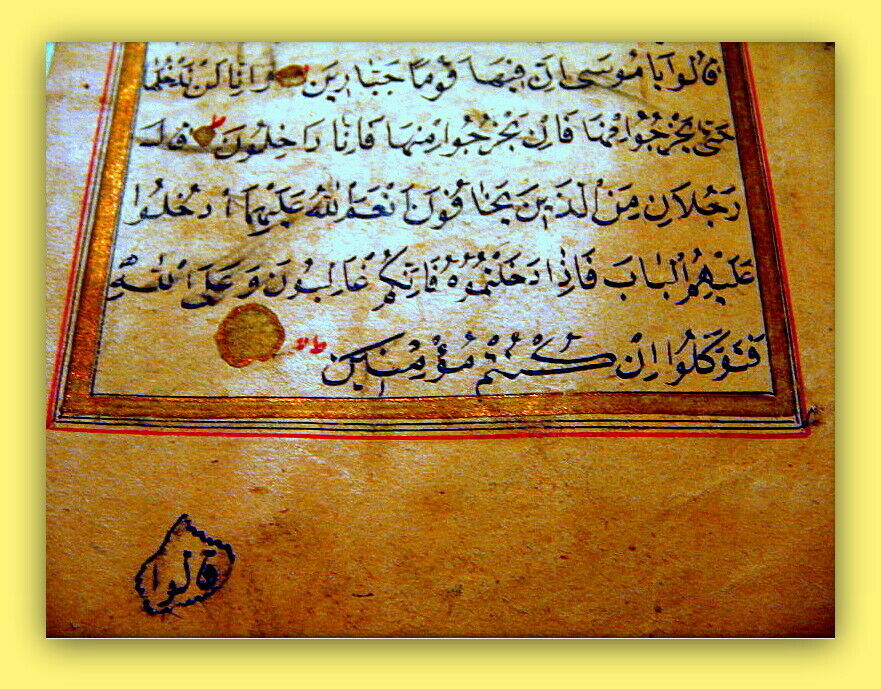 قَالُوا يَا مُوسَى اِنَّ فِيهَا قَوْمًا جَبَّارِينَ وَاِنَّا لَنْ نَدْخُلَهَا
حَتَّى يَخْرُجُوا مِنْهَا فَاِنْ يَخْرُجُوا مِنْهَا فَاِنَّا دَاخِلُونَ قَالَ
رَجُلَانِ مِنَ الَّذِينَ يَخَافُونَ اَنْعَمَ اللّٰهُ عَلَيْهِمَا ادْخُلُوا
عَلَيْهِمُ الْبَابَ فَاِذَا دَخَلْتُمُوهُ فَاِنَّكُمْ غَالِبُونَ وَعَلَى اللّٰهِ
فَتَوَكَّلُوا اِنْ كُنْتُمْ مُؤْمِنِينَ
قالوا